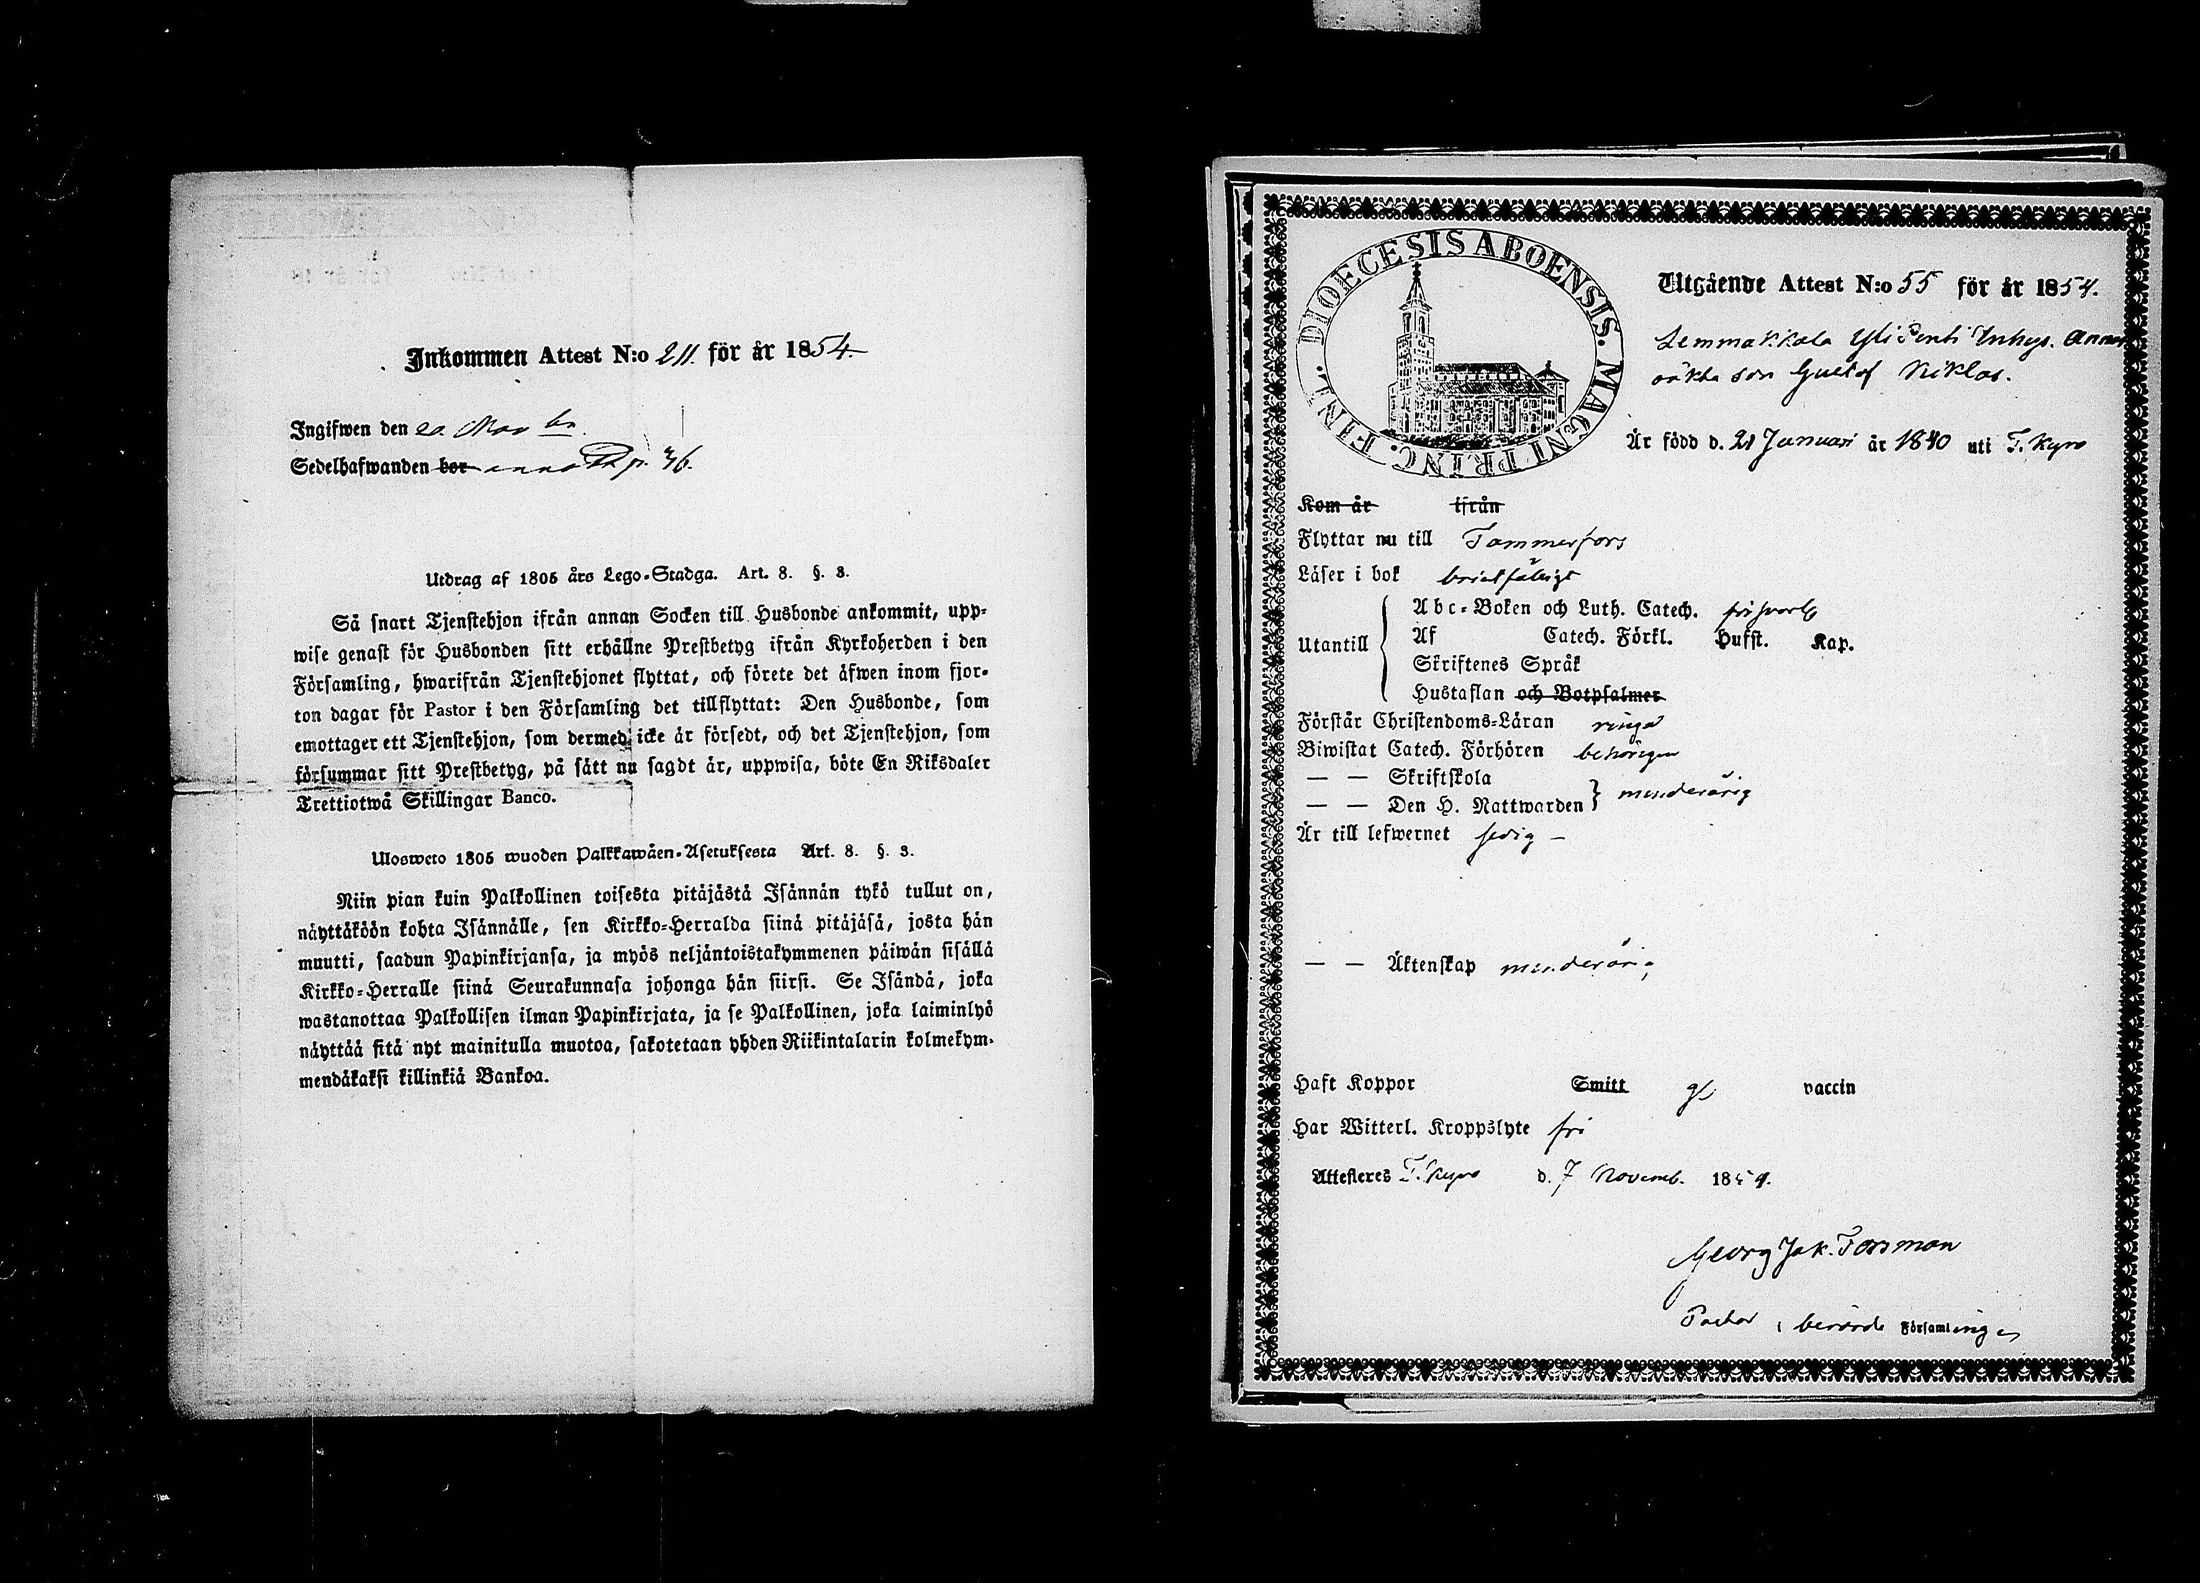 Inkommen Attest N:o 211. för år 1854.
Ingifwen den 20. Novbr.
Sedelhafwanden bor p. 46.
Utdrag af 1805 års Lego-Stadga. Art. 8. §. 3.
Så snart Tjenstehjon ifrån annan Socken till Husbonde ankommit, upp-
wise genast för Husbonden sitt erhållne Prestbetyg ifrån Kyrkoherden i den
Församling, hwarifrån Tjenstehjonet flyttat, och förete det äfwen inom fjor-
ton dagar för Pastor i den Församling det tillflyttat: Den Husbonde, som
emottager ett Tjenstehjon, som dermed icke är försedt, och det Tjenstehjon, som
försummar sitt Prestbetyg, på sätt nu sagdt är, uppwisa, böte En Riksdaler
Trettiotwå Skillingar Banco.
Ulosweto 1805 wuoden Palkkawäen-Asetuksesta Art. 8. §. 3.
Niin pian kuin Palkollinen toisesta pitäjästä Isännän tykö tullut on,
näyttäköön kohta Isännälle, sen Kirkko-Herralda siinä pitäjäsä, josta hän
muutti, saadun Papinkirjansa, ja myös neljäntoistakymmenen päiwän sisällä
Kirkko-Herralle siinä Seurakunnasa johonga hän siirsi. Se Isändä, joka
wastanottaa Palkollisen ilman Papinkirjata, ja se Palkollinen, joka laiminlyö
näyttää sitä nyt mainitulla muotoa, sakotetaan yhden Riikintalarin kolmekym-
mendäkaksi killinkiä Bankoa.
DIOECESIS ABOENSIS. MAGNI PRINC. FINL.
Utgående Attest N:o 55 för år 1854.
Lemmakkala Yli Penti Inhys. Annas
oäkta son Gustaf Niklas.
Är född d. 21 Januari år 1840 uti T. Kyro
Kom år ifrån
Flyttar nu till Tammerfors
Läser i bok bristfälligt
Utantill
Abc-Boken och Luth. Catech. försvarl.
Af Catech. Förkl. Hufst. Kap.
Skriftenes Språk
Hustaflan och Botpsalmer
Förstår Christendoms-Läran ringa
Biwistat Catech. Förhören behörigen
— — Skriftskola
— — Den H. Nattwarden } minderårig
Är till lefwernet sedig —
— — Äktenskap minderårig
Haft Koppor Smitt vaccin
Har Witterl. Kroppslyte fri
Attesteres T. Kyro d. 7 Novemb. 1854.
Georg Jak. Forsman
Pastor i berörde Församlingen